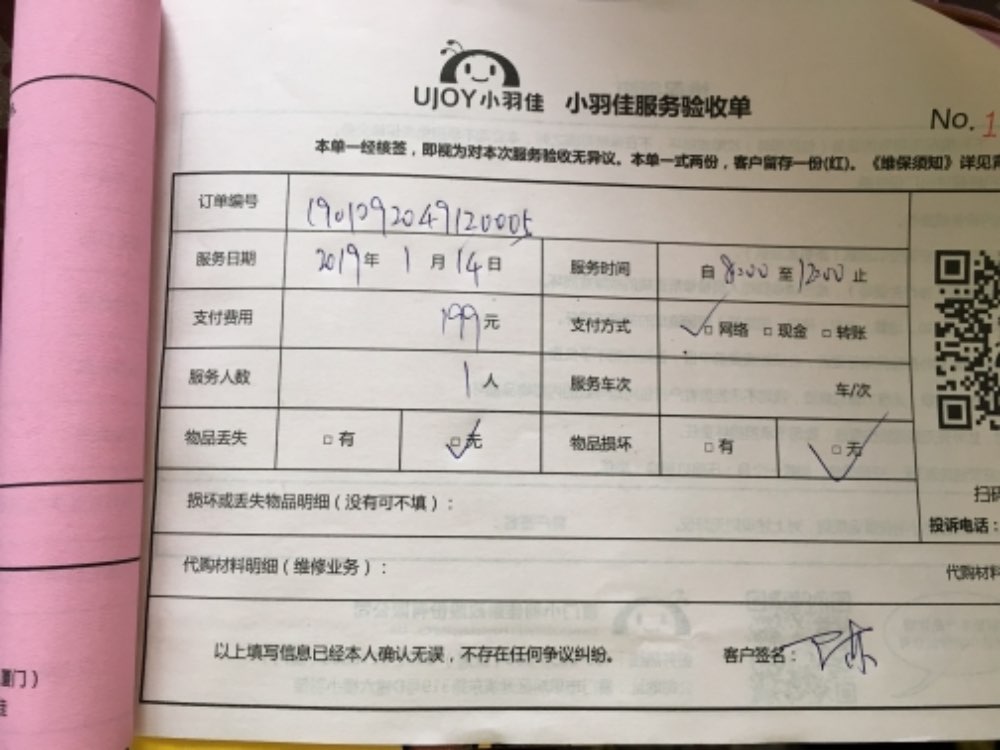 UJOY小羽佳 小羽佳服务验收单
No. 1
本单一经核签，即视为对本次服务验收无异议。本单一式两份，客户留存一份(红)。《维保须知》详见
订单编号 1901092049120005
服务日期 2019年 1月 14日 服务时间 自 8:00 至 12:00 止
支付费用 199元 支付方式 □网络 □现金 □转账
服务人数 1人 服务车次 车/次
物品丢失 □有 □无 物品损坏 □有 □无
损坏或丢失物品明细（没有可不填）：
扫码
投诉电话：
代购材料明细（维修业务）：
代购材料
以上填写信息已经本人确认无误，不存在任何争议纠纷。 客户签名：
厦门）